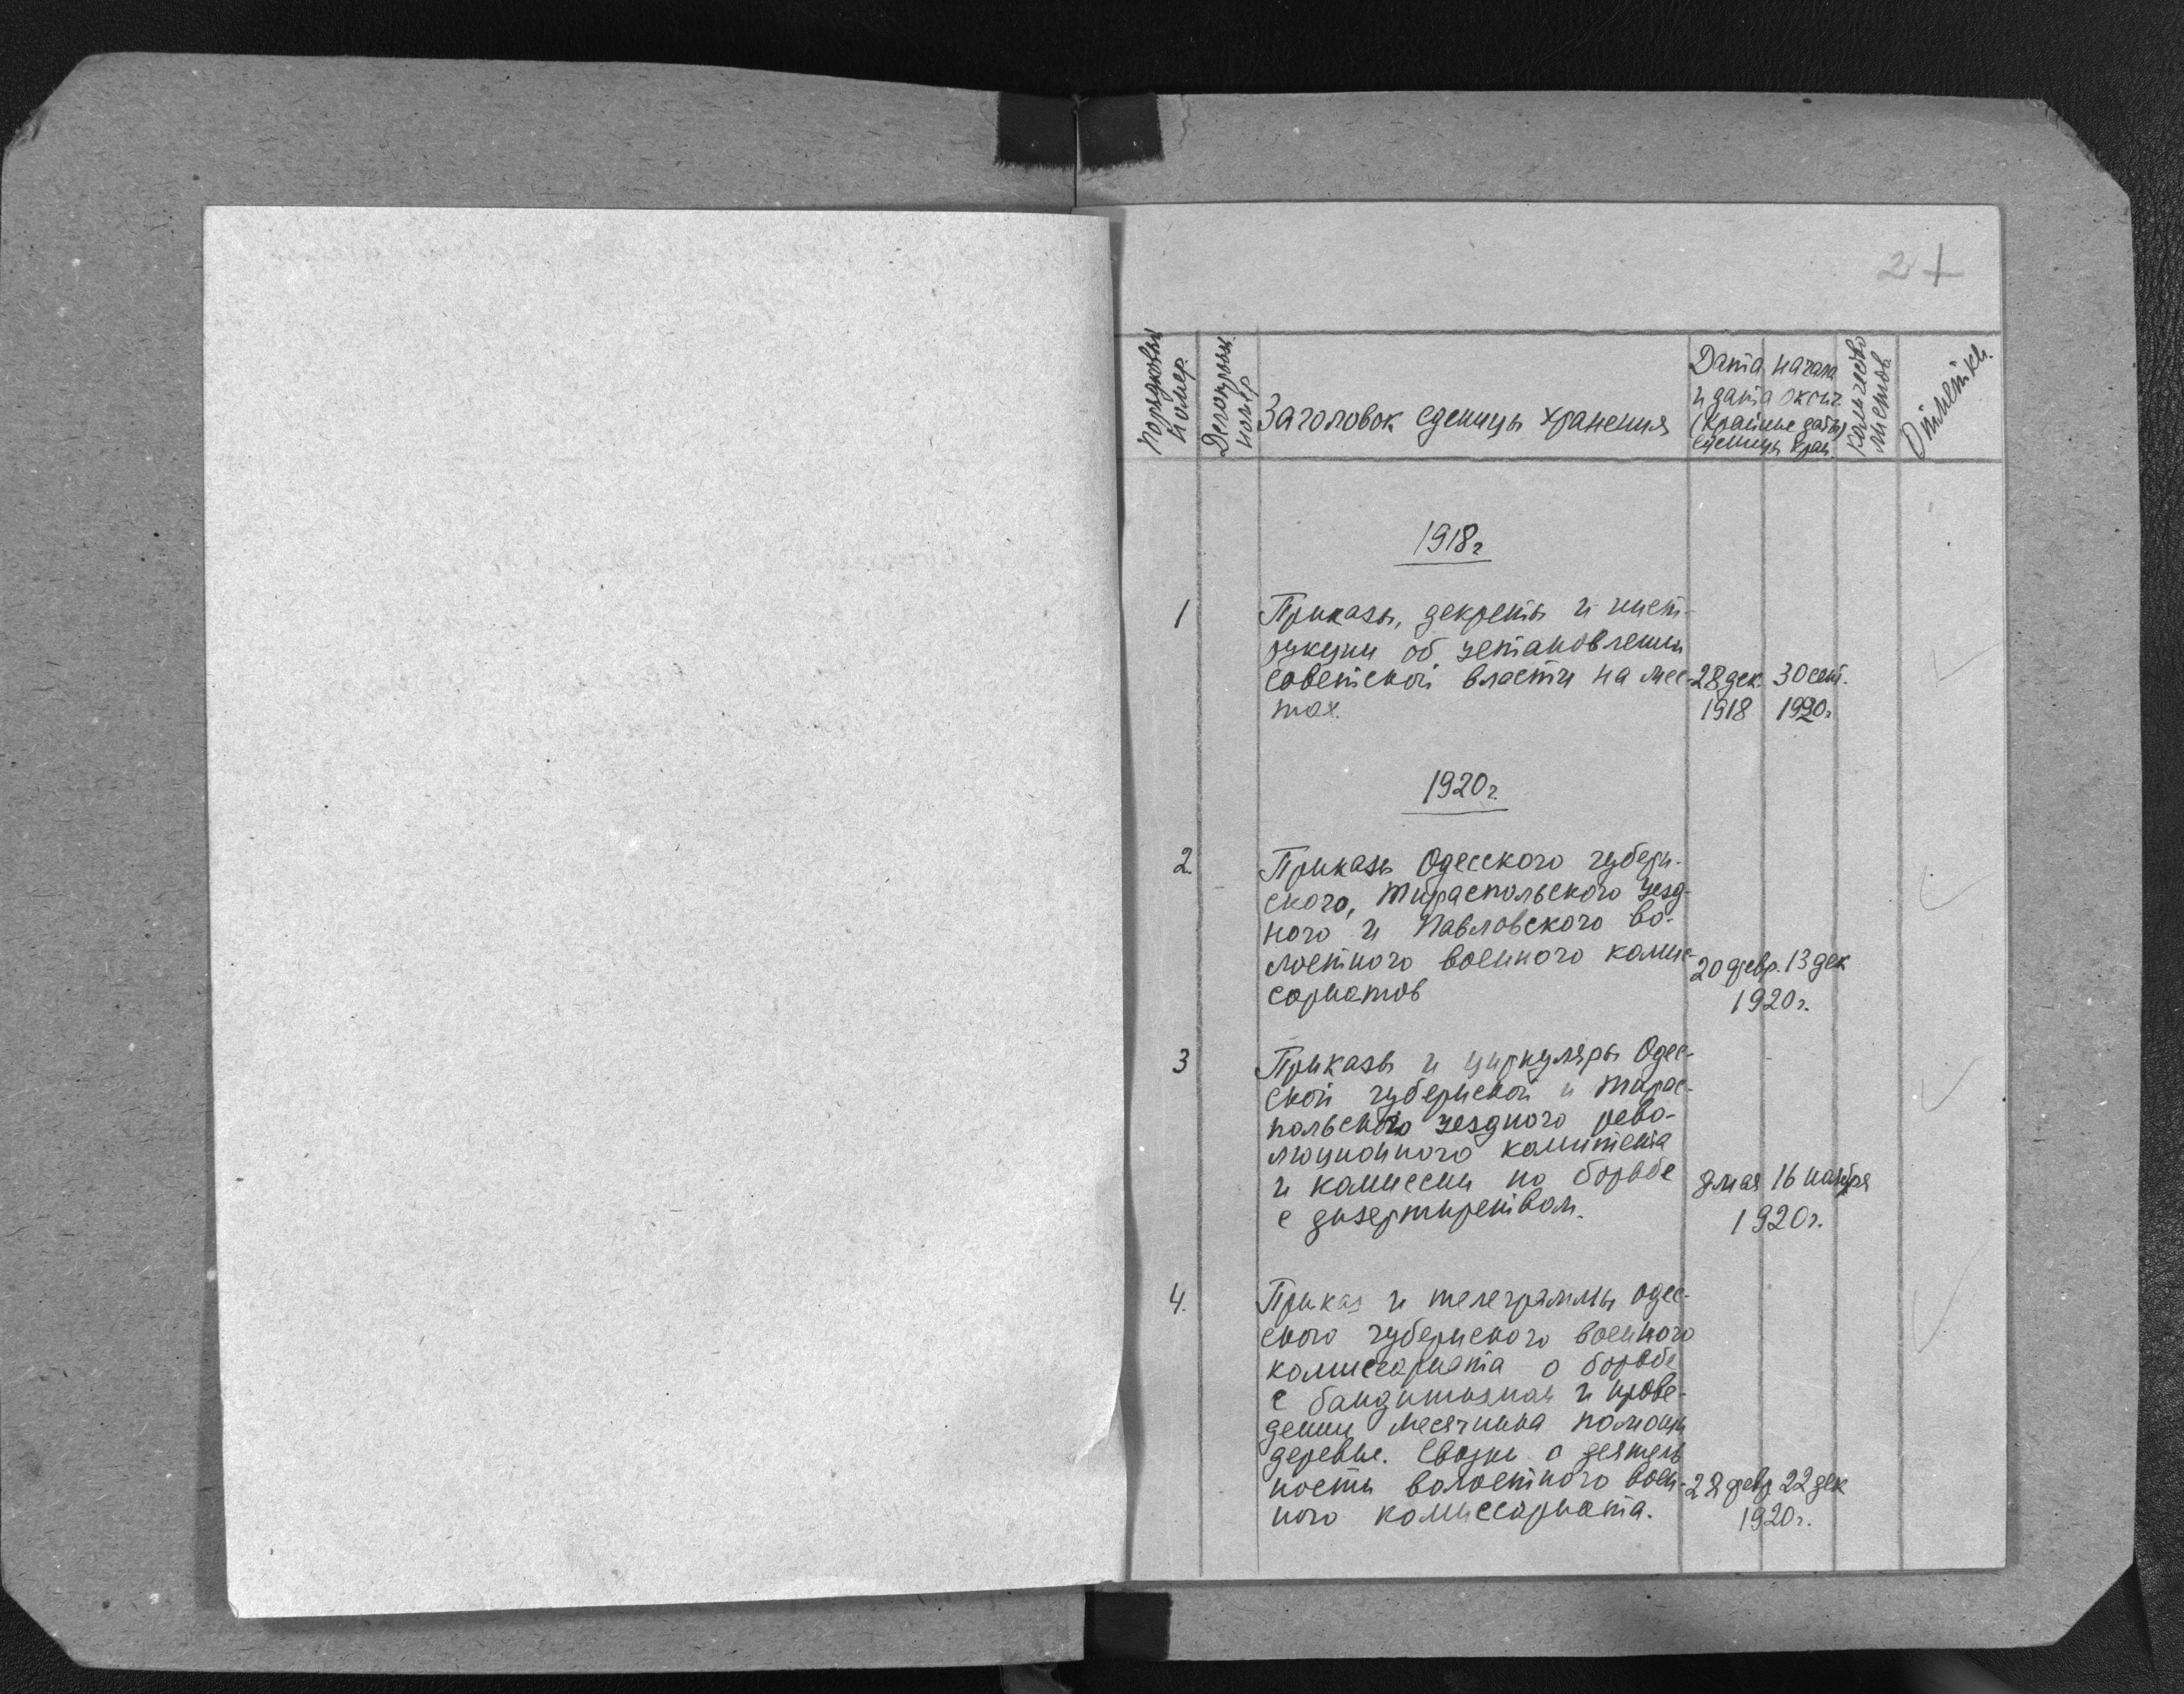 2 1
Порядковый
номер
Делопроизв.
номер
Заголовок еденицы хранения
Дата начала
и дата оконч.
(крайние даты)
еденицы хран.
Количество
листов
Отметки.
1918г
1
Приказы, декреты и инст-
рукции об установлении
советской власти на мес-
28 дек. 30 сент.
тах.
1918 1920г
1920г.
2.
Приказы Одесского губерн-
ского, Тираспольского уезд-
ного и Павловского во-
лостного военного комис-
20 февр. 13 дек
сориатов
1920г.
3
Приказы и циркуляры Одес-
ской губернской и Тирас-
польского уездного рево-
люционного комитета
и комиссии по борьбе
мая 16 ноября
с дизертирством.
1920г.
4.
Приказ и телеграммы Одес-
ского губернского военного
комиссариата о борьбе
с бандитизмом и прове-
дении месячника помощи
деревне. Сводки о деятель
ности волостного воен-
28 февр 22 дек
ного комиссориата.
1920г.